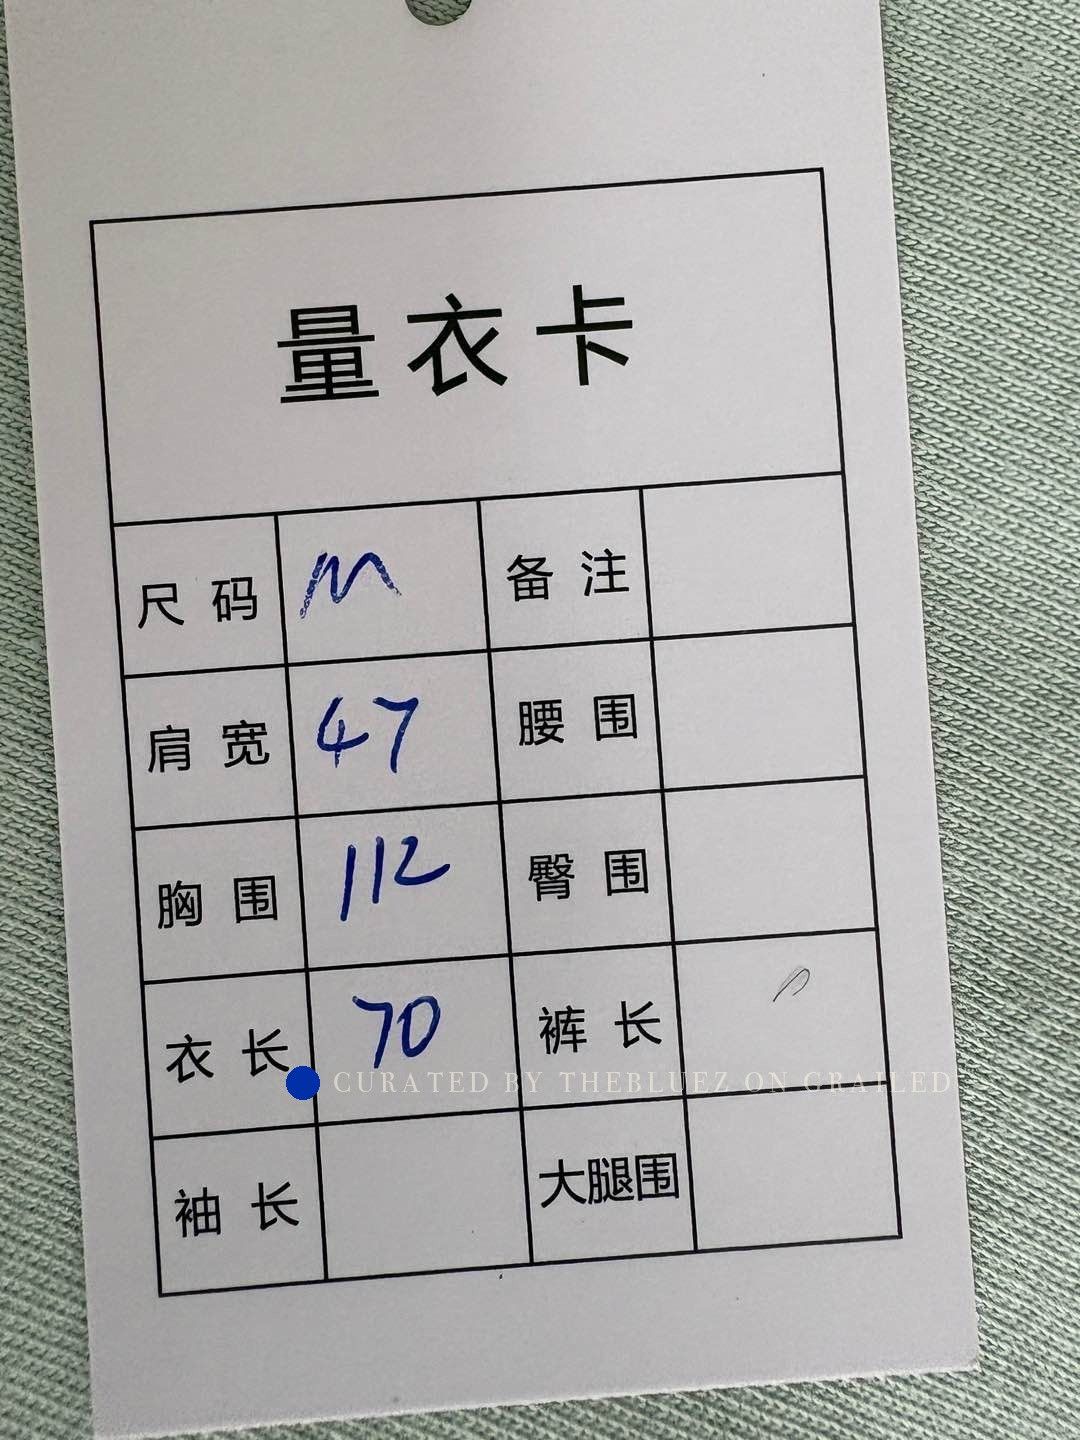 量衣卡
尺码 M 备注
肩宽 47 腰围
胸围 112 臀围
衣长 70 裤长
CURATED BY THEBLUEZ ON GRAILED
袖长 大腿围